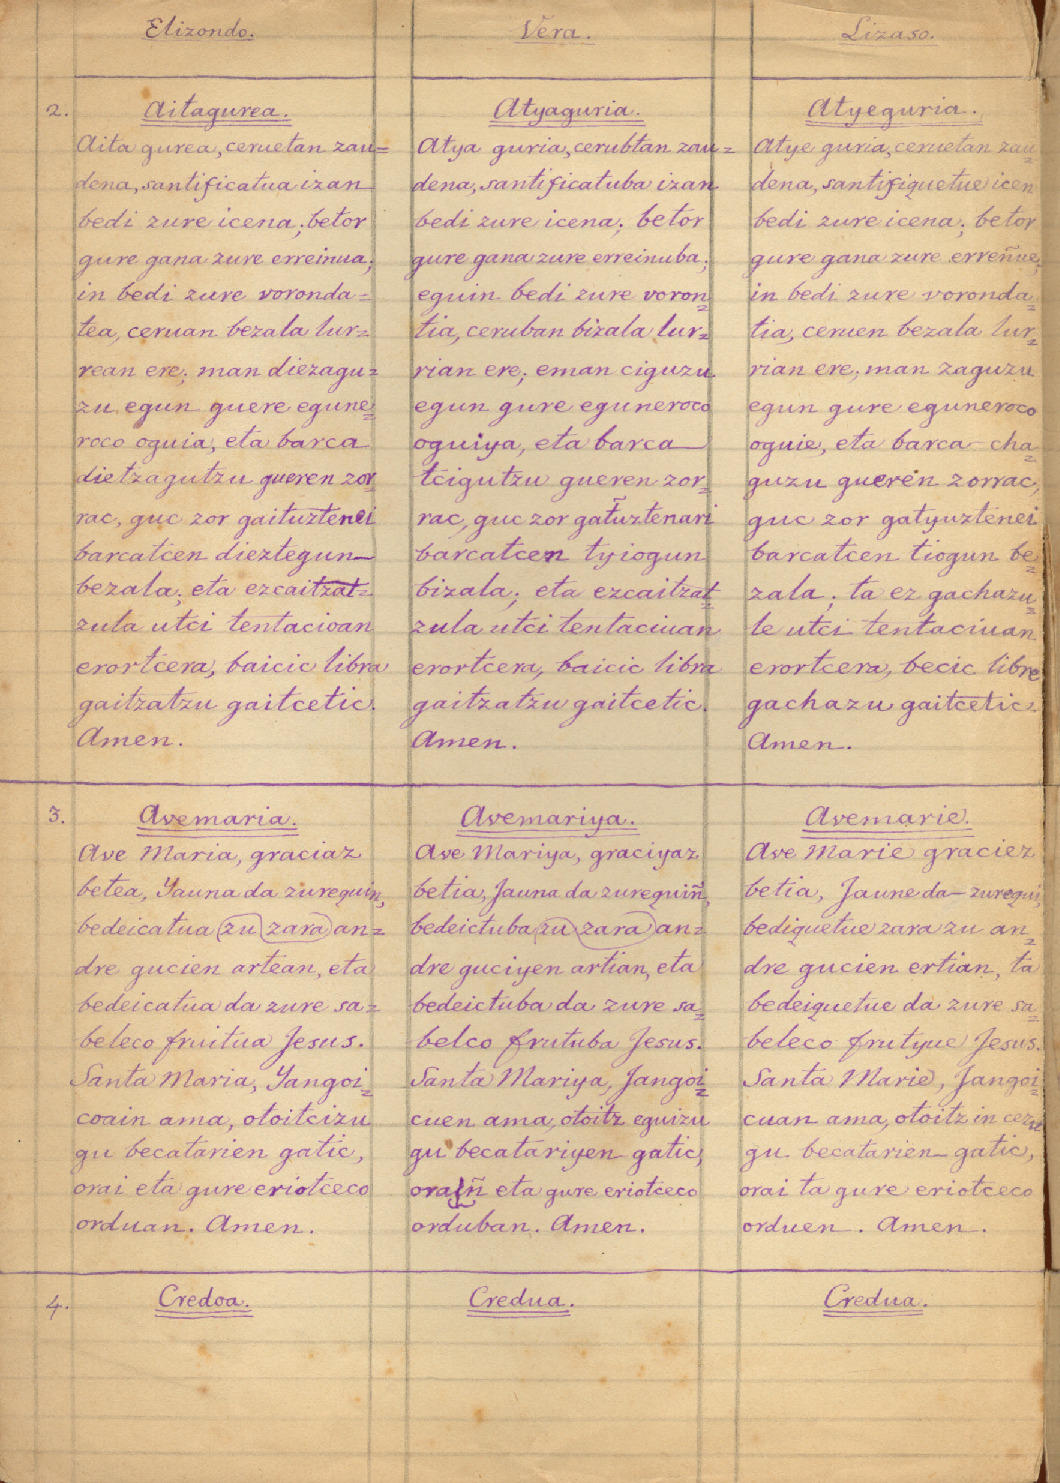 Elizondo.
Vera.
Lizaso.
2.
Aitagurea.
Aita gurea, ceruetan zau=
dena, santificatua izan
bedi zure icena; betor
gure gana zure erreinua;
in bedi zure voronda=
tea, ceruan bezala lur=
rean ere; man diezagu=
zu egun guere egune=
roco oguia, eta barca
dietzagutzu gueren zor=
rac, guc zor gaituztenei
barcatcen dieztegun
bezala; eta ezcaitzat=
zula utci tentacioan
erortcera, baicic libra
gaitzatzu gaitcetic.
Amen.
Atyaguria.
Atya guria, cerubtan zau=
dena, santificatuba izan
bedi zure icena; betor
gure gana zure erreinuba;
eguin bedi zure voron=
tia, ceruban bizala lur=
rian ere; eman ciguzu
egun gure eguneroco
oguiya, eta barca
tcigutzu gueren zor=
rac, guc zor gatuztenari
barcatcen tyiogun
bizala; eta ezcaitzat=
zula utci tentaciuan
erortcera, baicic libra
gaitzatzu gaitcetic.
Amen.
Atyeguria.
Atye guria, ceruetan zau=
dena, santifiquetue icen
bedi zure icena; betor
gure gana zure erreñue;
in bedi zure voronda=
tia, ceruen bezala lur=
rian ere; man zaguzu
egun gure eguneroco
oguie, eta barca cha=
guzu guerén zorrac,
guc zor gatyuztenei
barcatcen tiogun be=
zala; ta ez gachazu=
le utci tentaciuan
erortcera, becic libre
gachazu gaitcetic.
Amen.
3.
Avemaria.
Ave Maria, graciaz
betea, Yauna da zurequin,
bedeicatua zu zara an=
dre gucien artean, eta
bedeicatua da zure sa=
beleco fruitua Jesus.
Santa Maria, Yangoi=
coain ama, otoitcizu
gu becatarien gatic,
orai eta gure eriotceco
orduan. Amen.
Avemariya.
Ave Mariya, graciyaz
betia, Jauna da zurequiñ,
bedeictuba zu zara an=
dre guciyen artian, eta
bedeictuba da zure sa=
belco frutuba Jesus.
Santa Mariya, Jangoi=
cuen ama, otoitz eguizu
gu becatariyen gatic,
oraiñ eta gure eriotceco
orduban. Amen.
Avemarie.
Ave Marie graciez
betia, Jaune da zurequi,
bediquetue zara zu an=
dre gucien ertian, ta
bedeiquetue da zure sa=
beleco frutyue Jesus.
Santa Marie, Jangoi=
cuan ama, otoitz in
gu becatarien gatic,
orai ta gure eriotceco
orduen. Amen.
4.
Credoa.
Credua.
Credua.